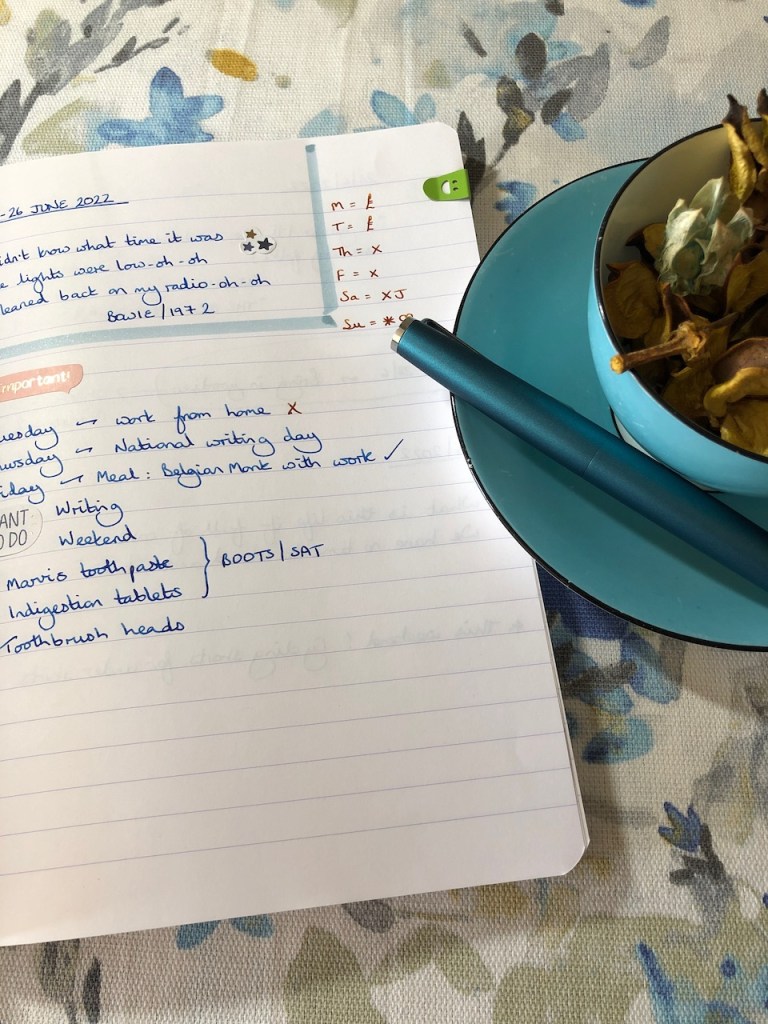 -26 JUNE 2022
idn't know what time it was
e lights were low-oh-oh
leaned back on my radio-oh-oh
BOWIE / 1972
M = £
T = £
Th = x
F = x
Sa = x J
Su = *
important!
uesday → work from home x
ursday → National writing day
iday → Meal: Belgian Monk with work ✓
ANT
O DO
Writing
Weekend
Marvis toothpaste
Indigestion tablets
} BOOTS / SAT
Toothbrush heads